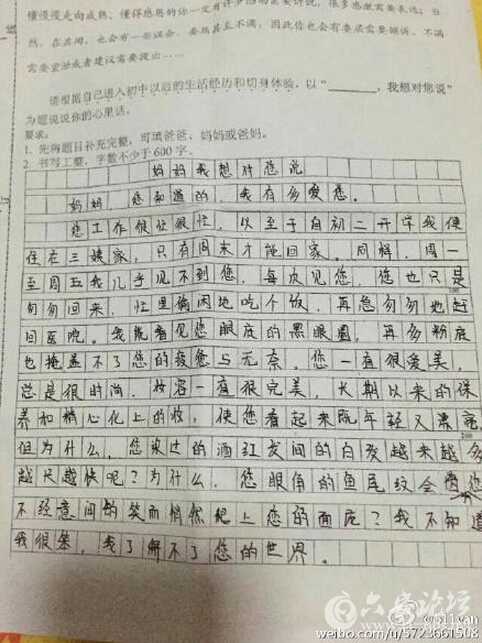 懂慢慢走向成熟、懂得感恩的你一定有许多心动需要讲说，很多感激需要表达；当
然，在其间，也会有一些误会、委屈甚至不满，因此你也会有委屈需要倾诉、不满
需要宣泄或者建议需要提出……
请根据自己进入初中以后的生活经历和切身体验，以“________，我想对您说”
为题说说你的心里话。
要求：
1. 先将题目补充完整，可填爸爸、妈妈或爸妈。
2. 书写工整，字数不少于600字。
妈妈我想对您说
妈妈，您知道的，我有多爱您。
您工作很忙很忙，以至于自初二开学我便
住在三姨家，只有周末才能回家。同样，周一
至周五我几乎见不到您，每次见您，您也只是
匆匆回来，忙里偷闲地吃个饭，再急匆匆地赶
回医院。我能看见您眼底的黑眼圈，再多粉底
也掩盖不了您的疲惫与无奈。您一直很爱美，
总是很时尚，妆容一直很完美，长期以来的保
养和精心化上的妆，使您看起来既年轻又漂亮，
但为什么，您染过的酒红发间的白发越来越多
越长越快呢？为什么，您眼角的鱼尾纹会
不经意间的笑而悄然爬上您的面庞？我不知道
我很笨，我了解不了您的世界。
六安论坛
weibo.com/u/5723661508